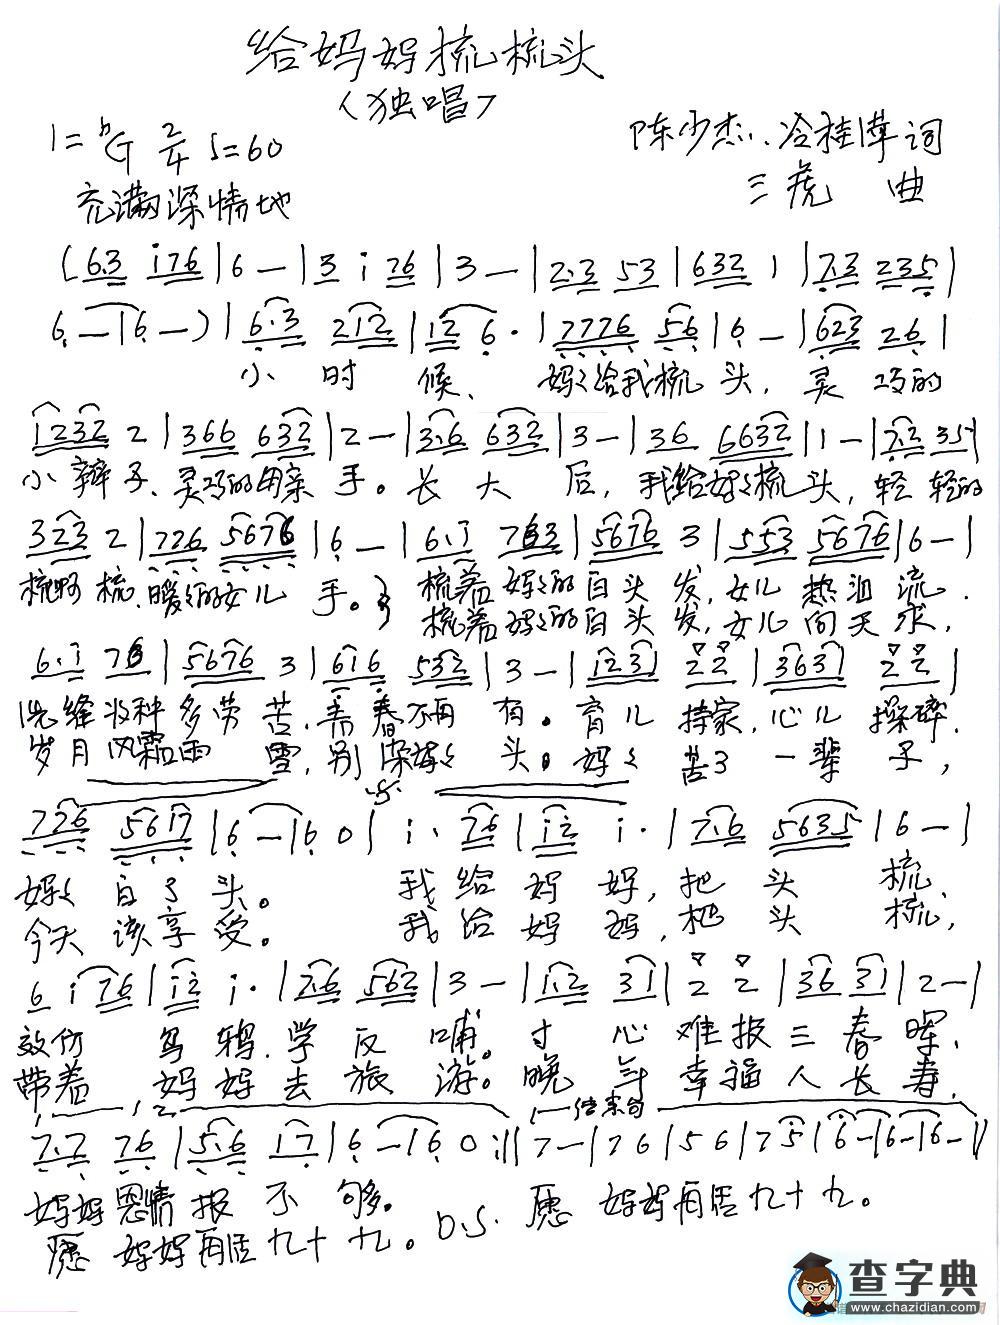 给妈妈梳梳头
（独唱）
1=bG 2/4 ♩=60
陈少杰、冷桂萍 词
充满深情地
三虎 曲
(6.3 i76|6 —|3 i 76|3 —|2.3 53|632 1|7.3 235|
6 —|6 —)|6.3 212|12 6.|7776 56|6 —|623 26|
小 时 候、 妈妈给我梳 头， 灵 巧的
1232 2|366 632|2 —|3.6 632|3 —|36 6632|1 —|7.2 35|
小 辫 子、灵巧的母亲 手。长 大 后，我给妈妈梳 头，轻 轻的
323 2|726 5676|6 —|6.i 763|5676 3|553 5676|6 —|
梳啊 梳、暖暖的女儿 手。 梳着 妈妈的白头 发，女儿 热泪 流．
梳着 妈妈的白头 发，女儿 问天 求，
6.i 76|5676 3|616 532|3 —|1231 22|3631 22|
洗缝 多劳 苦，青春不再 有。育儿 持家，心儿 操碎．
岁月风霜雨 雪，别染妈妈 头。妈妈 苦了 一辈 子，
726 5617|6 —|6 0|i. 76|i2 i.|7.6 5635|6 —|
妈妈 白了 头。 我 给 妈 妈，把 头 梳、
今天 该享 受。 我 给 妈 妈，把 头 梳，
6 i 76|i2 i.|2.6 562|3 —|1.2 31|2 2|36 31|2 —|
效仿 乌 鸦．学 反 哺。寸 心 难报 三 春 晖、
带着 妈 妈 去 旅 游。晚 年 幸福 人 长 寿，
1. 2. 结束句
7.7 76|5.6 17|6 —|6 0:||7 —|7 6|5 6|7 5|6 —|6 —|6 —||
妈妈 恩情 报 不 够。
D.S. 愿 妈妈再活九十九。
愿 妈妈再活九十九。
查字典
www.chazidian.com